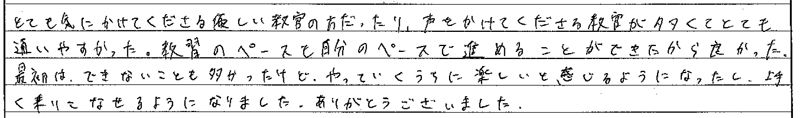 とても気にかけてくださる優しい教官の方だったり、声をかけてくださる教官が多くてとても
通いやすかった。教習のペースも自分のペースで進めることができたから良かった。
最初は、できないことも多かったけど、やっていくうちに楽しいと感じるようになったし、上手
く乗りこなせるようになりました。ありがとうございました。